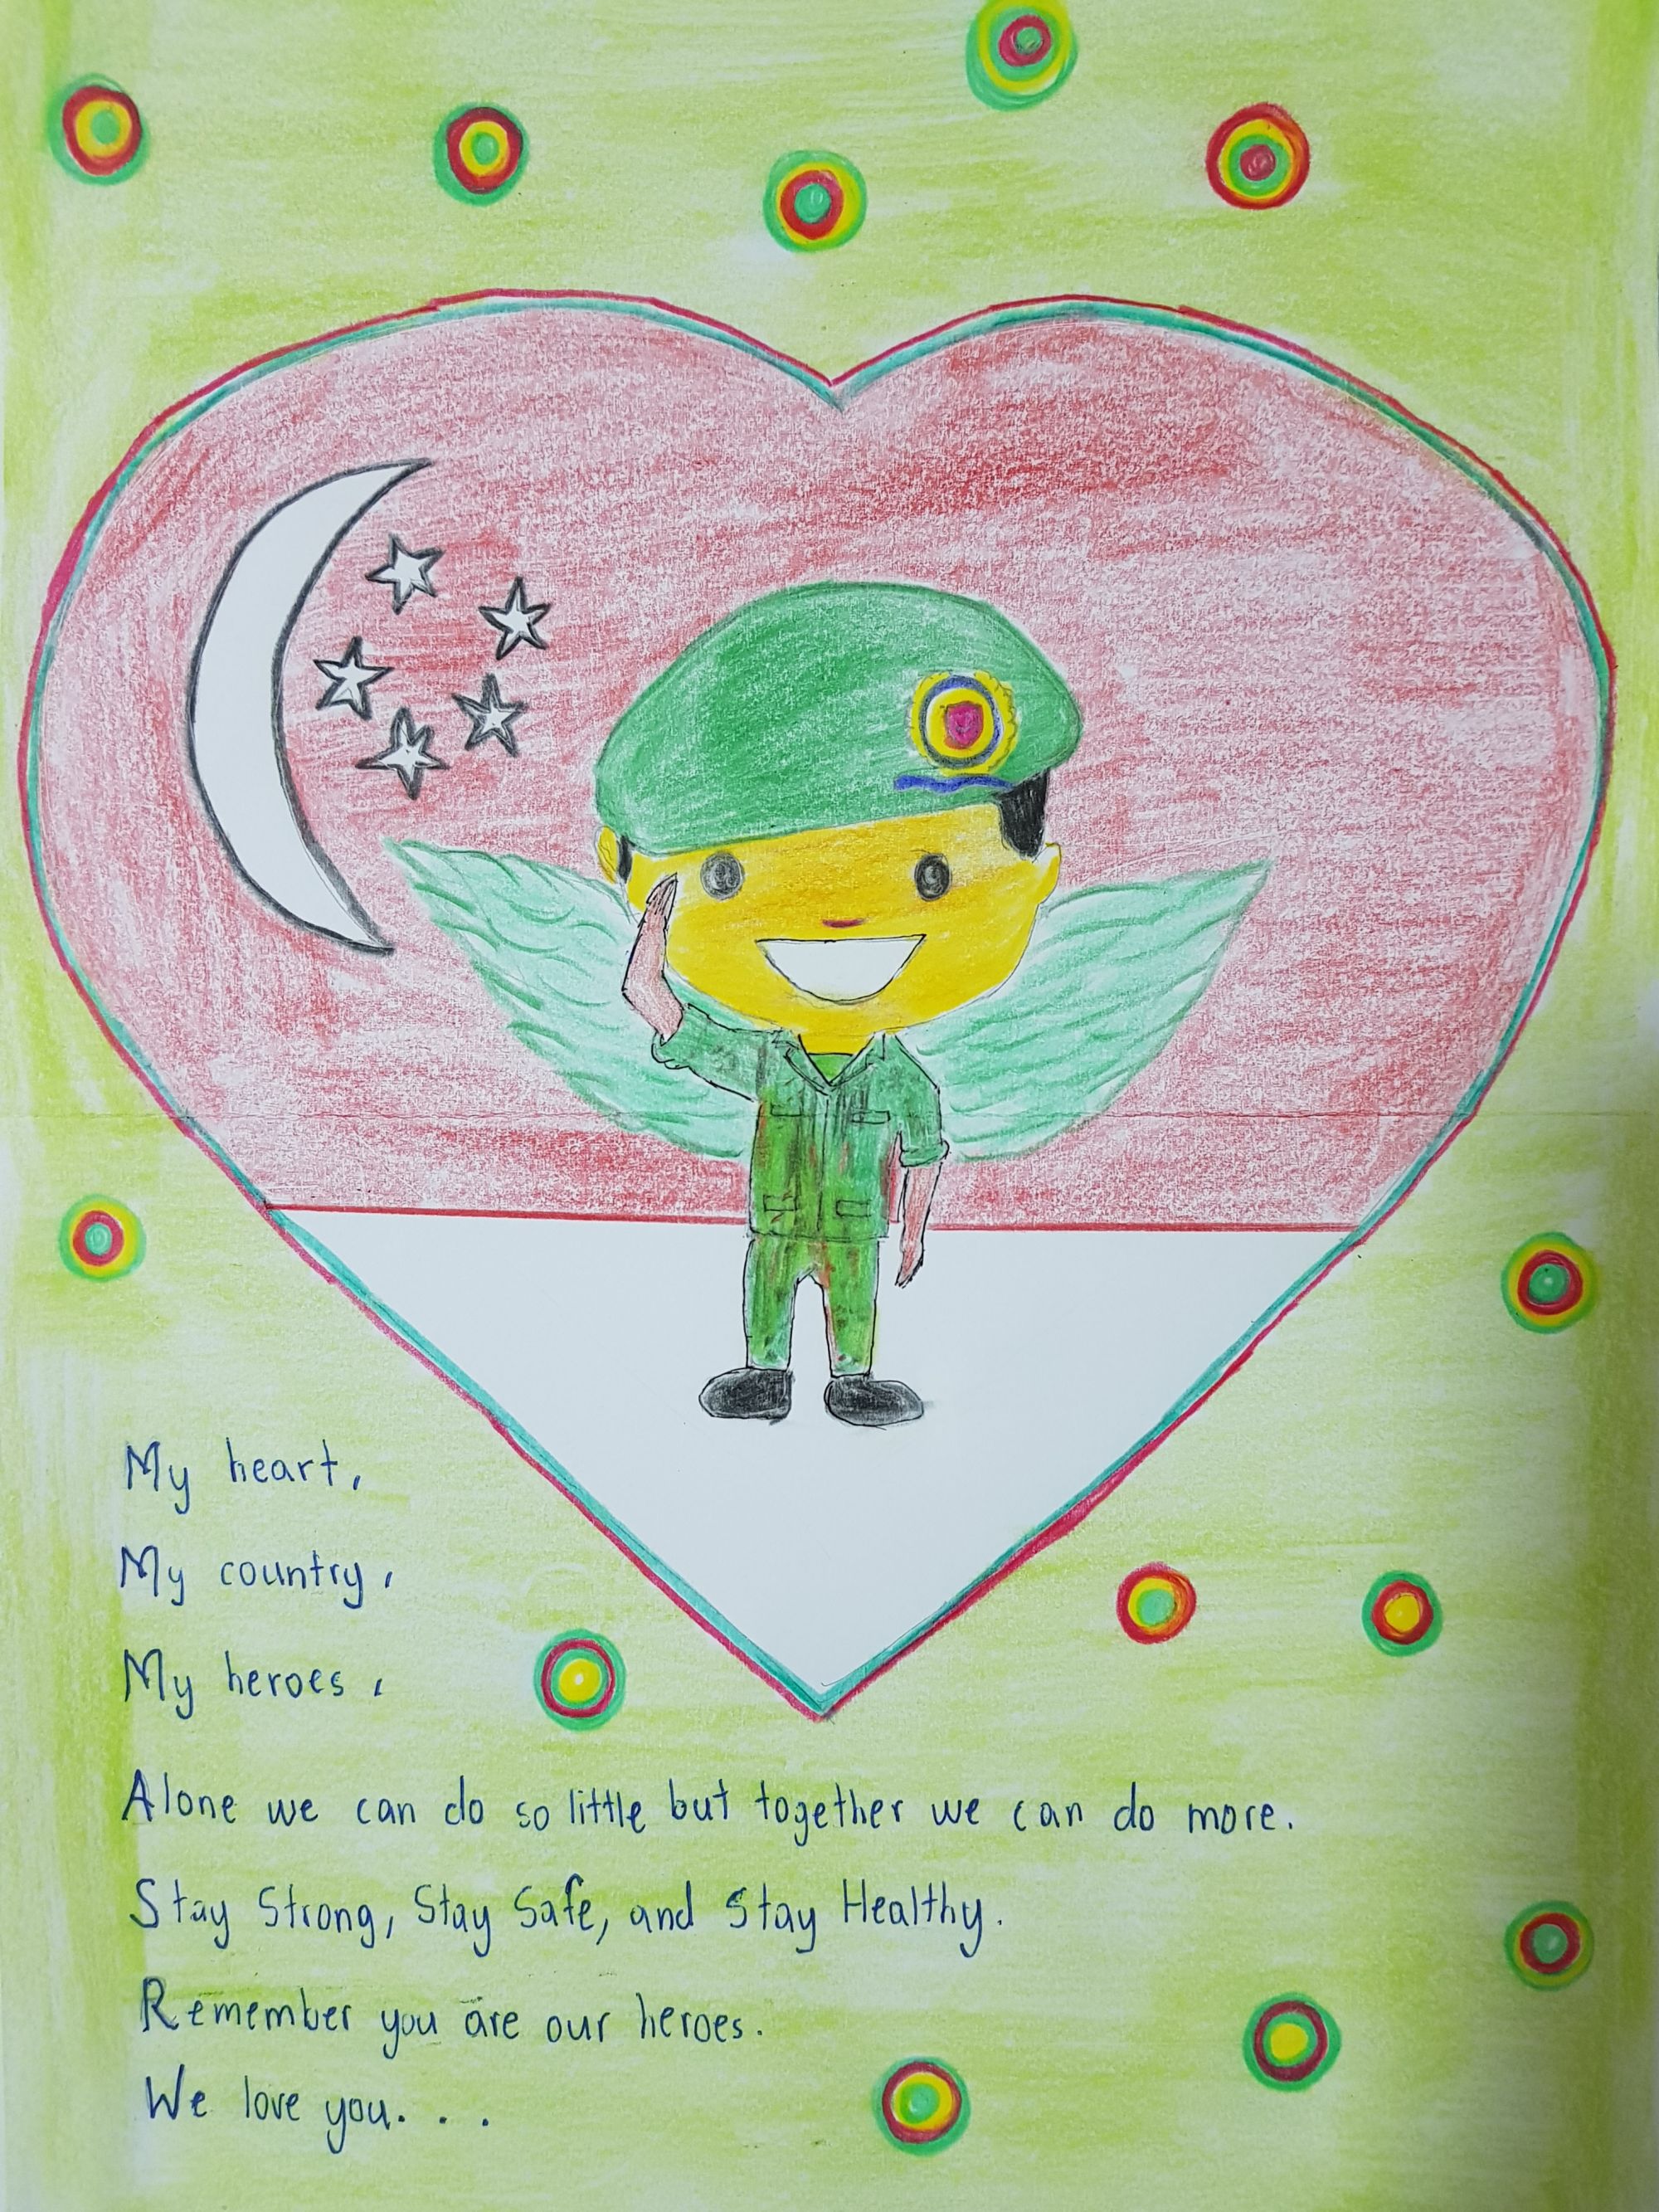 My heart,
My country,
My heroes,
Alone we can do so little but together we can do more.
Stay Strong, Stay Safe, and Stay Healthy.
Remember you are our heroes.
We love you. . .